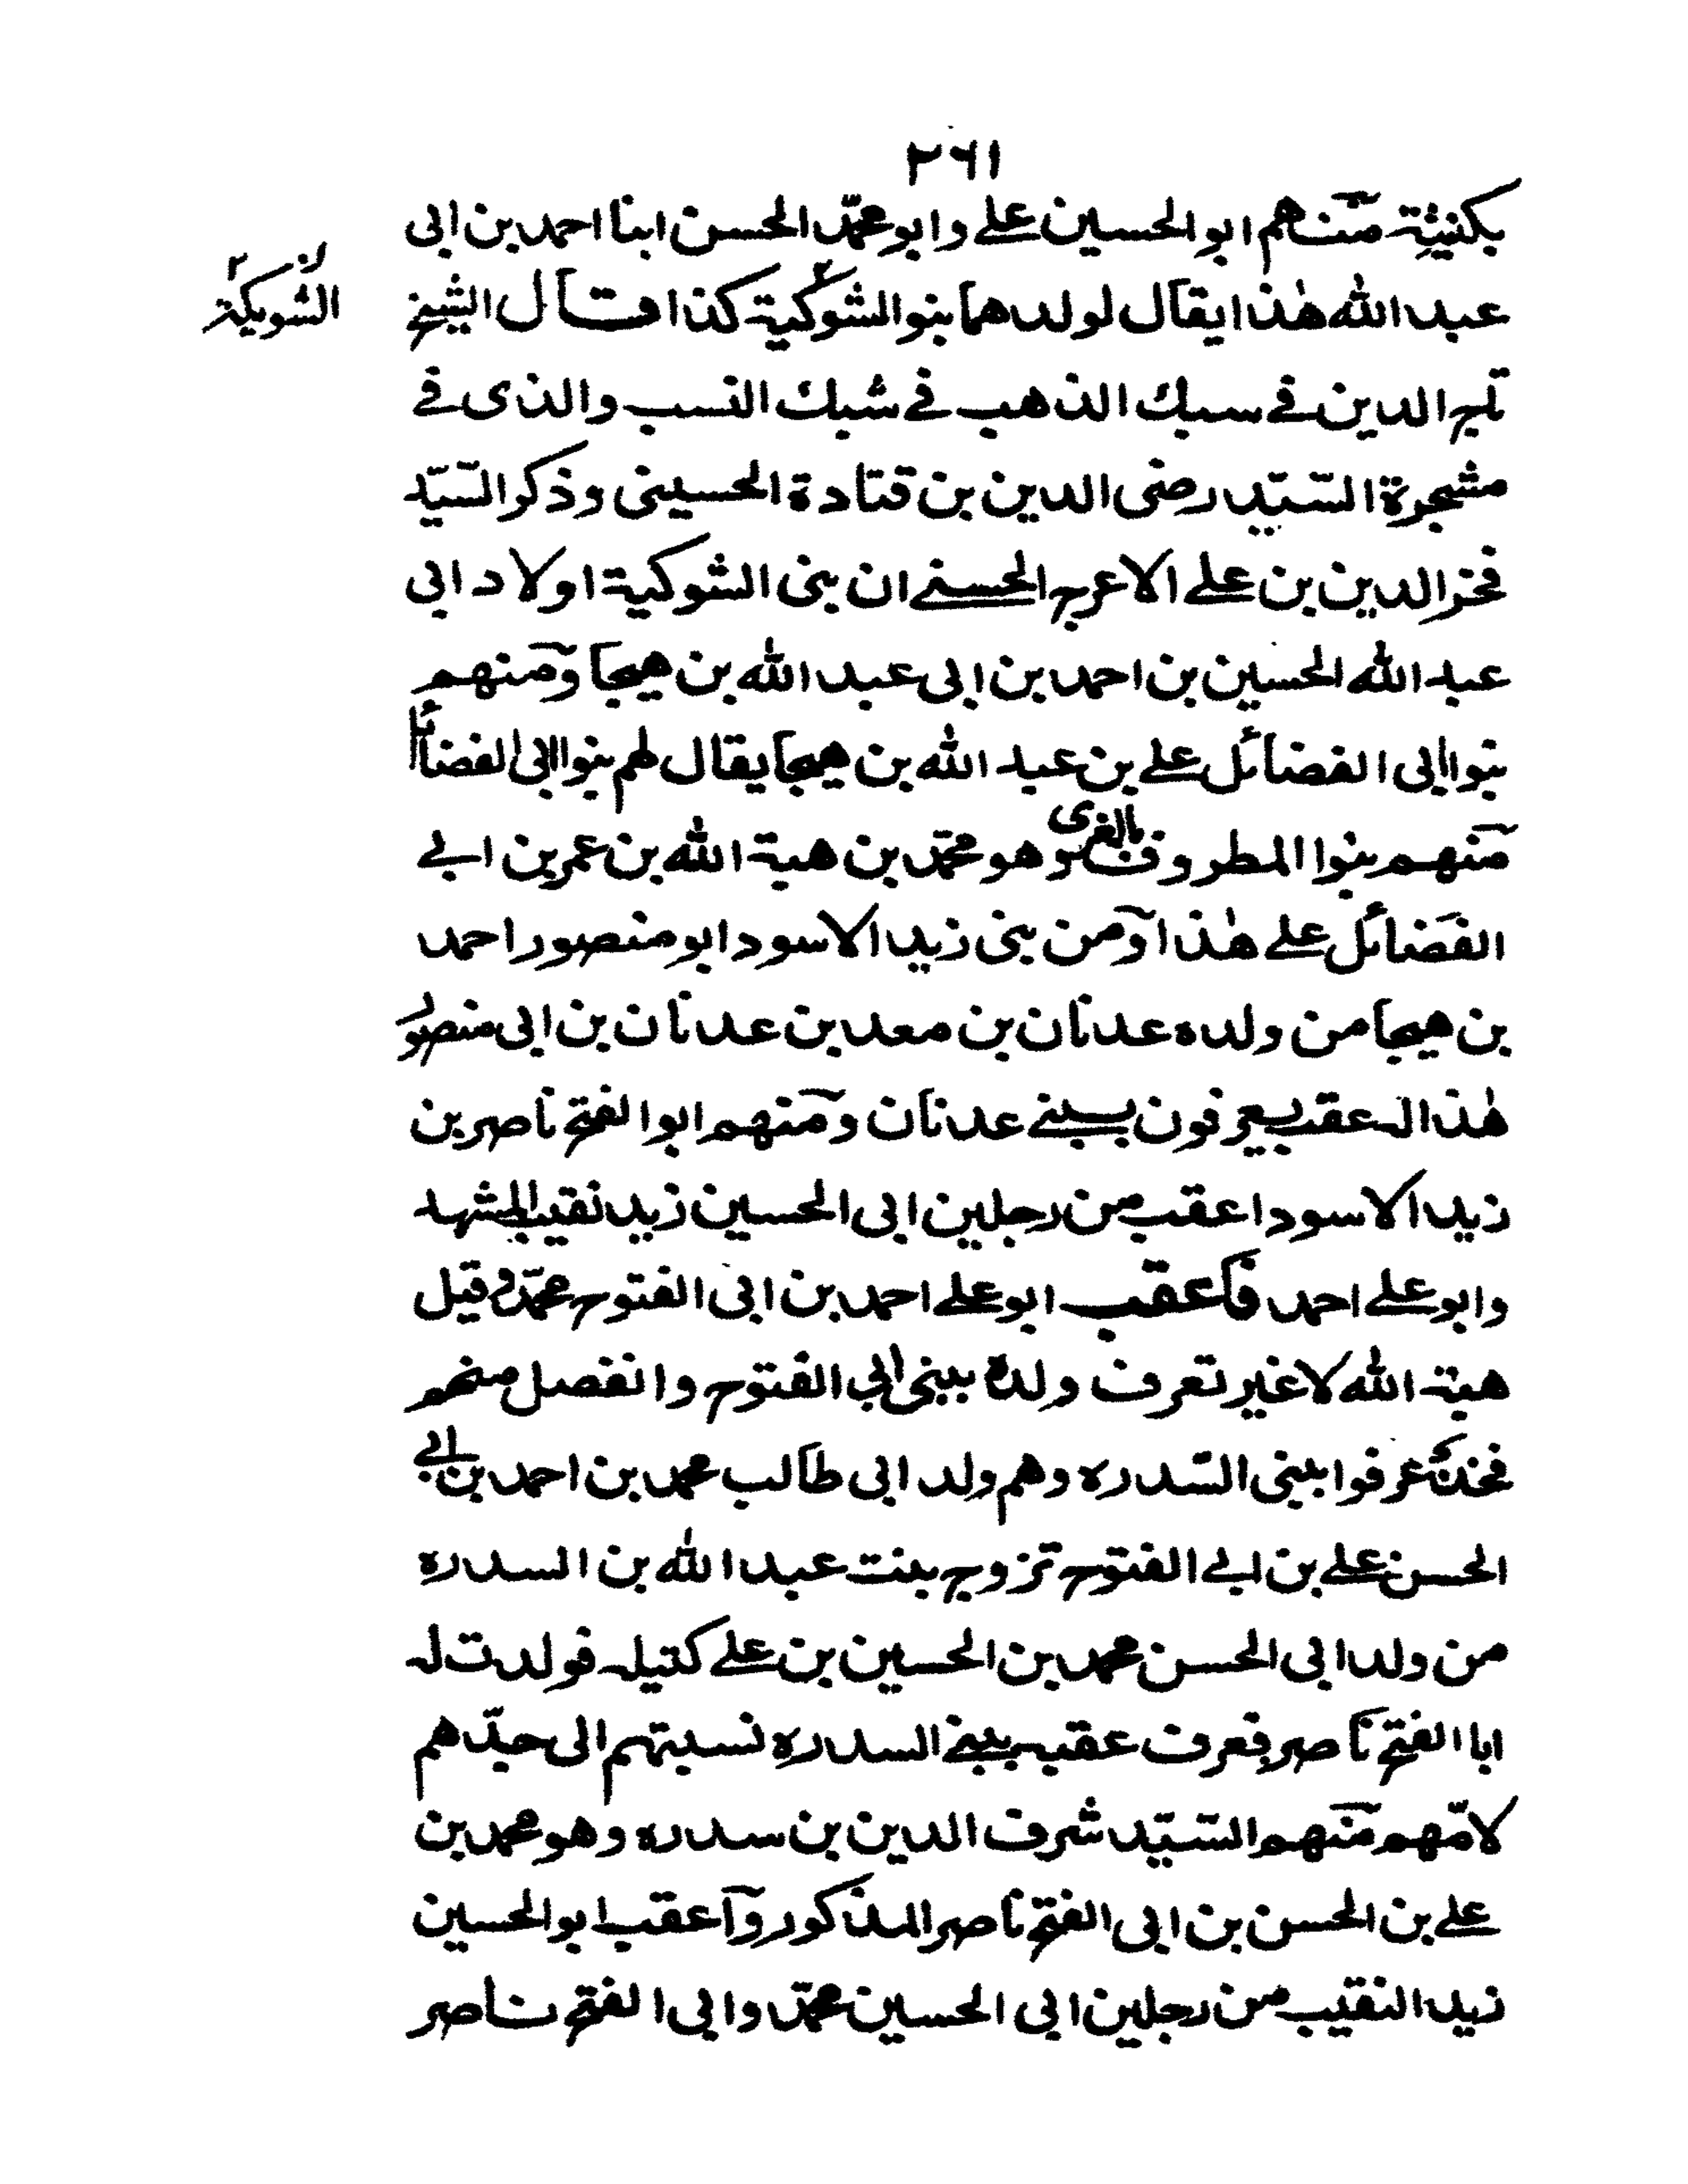 ٢٦١
بكنيته منهم ابو الحسين على وابو محمّد الحسن ابنا احمد بن ابى
عبد الله هٰذا يقال لولدهما بنو الشوكية كذا قال الشيخ
الشويكة
تاج الدين فى سبك الذهب فى شبك النسب والذى فى
مشجرة السّيّد رضى الدين بن قتادة الحسينى وذكر السّيّد
فخر الدين بن على الاعرج الحسنى ان بنى الشوكية اولاد ابى
عبد الله الحسين بن احمد بن ابى عبد الله بن هيجا ومنهم
بنوا ابى الفضائل على بن عبد الله بن هيجا يقال لهم بنوا ابى الفضائل
منهم بنوا المطروف بالغرى وهو محمّد بن هبة الله بن عمر بن ابى
الفضائل على هٰذا ومن بنى زيد الاسود ابو منصور احمد
بن هيجا من ولده عدنان بن معد بن عدنان بن ابى منصور
هٰذا له عقب يعرفون ببنى عدنان ومنهم ابو الفتح ناصر بن
زيد الاسود اعقب من رجلين ابى الحسين زيد نقيب المشهد
وابو على احمد فاعقب ابو على احمد بن ابى الفتوح محمّد وقيل
هبة الله لا غير تعرف ولده ببنى ابى الفتوح وانفصل منهم
فخذ عرفوا ببنى السّدره وهم ولد ابى طالب محمد بن احمد بن ابى
الحسن على بن ابى الفتوح تزوج بنت عبد الله بن السدره
من ولد ابى الحسن محمد بن الحسين بن على كتيله فولدت له
ابا الفتح ناصر فعرف عقبه ببنى السدره نسبتهم الى جدّهم
لامّهم منهم السّيّد شرف الدين بن سدره وهو محمد بن
على بن الحسن بن ابى الفتح ناصر المذكور واعقب ابو الحسين
زيد النقيب من رجلين ابى الحسين محمّد وابى الفتح ناصر